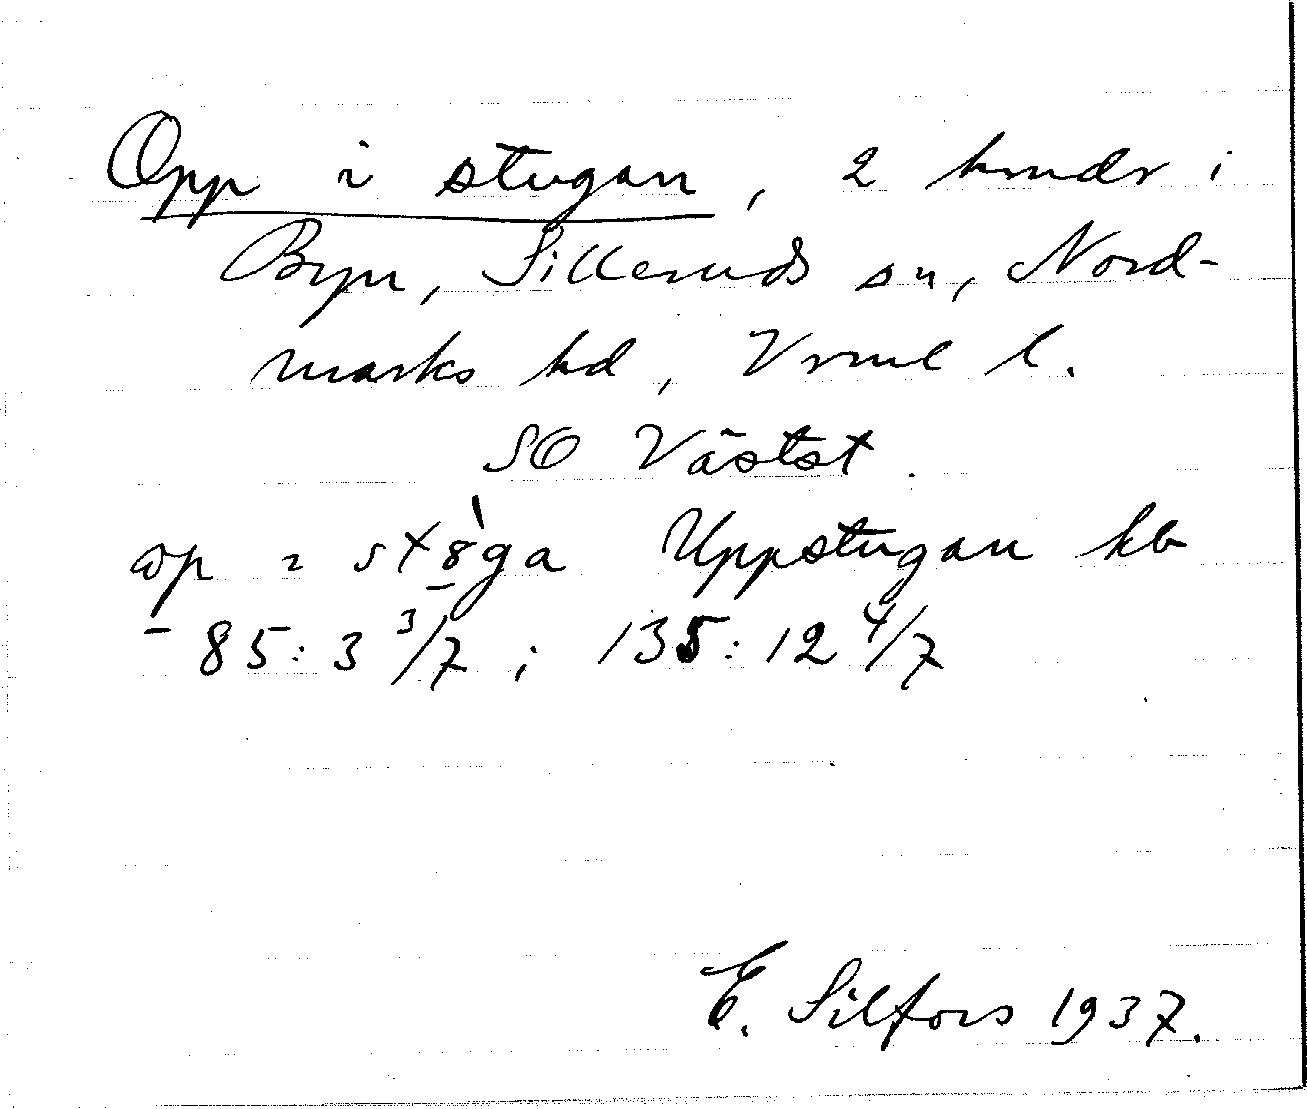 Opp i stugan, 2 hmdr i
Byn, Silleruds sn, Nord-
marks hd, Vrml l.
SO Västst.
op i st8̀ga Uppstugan kb
- 85:3 3/7; 135:12 4/7
E. Silfors 1937.